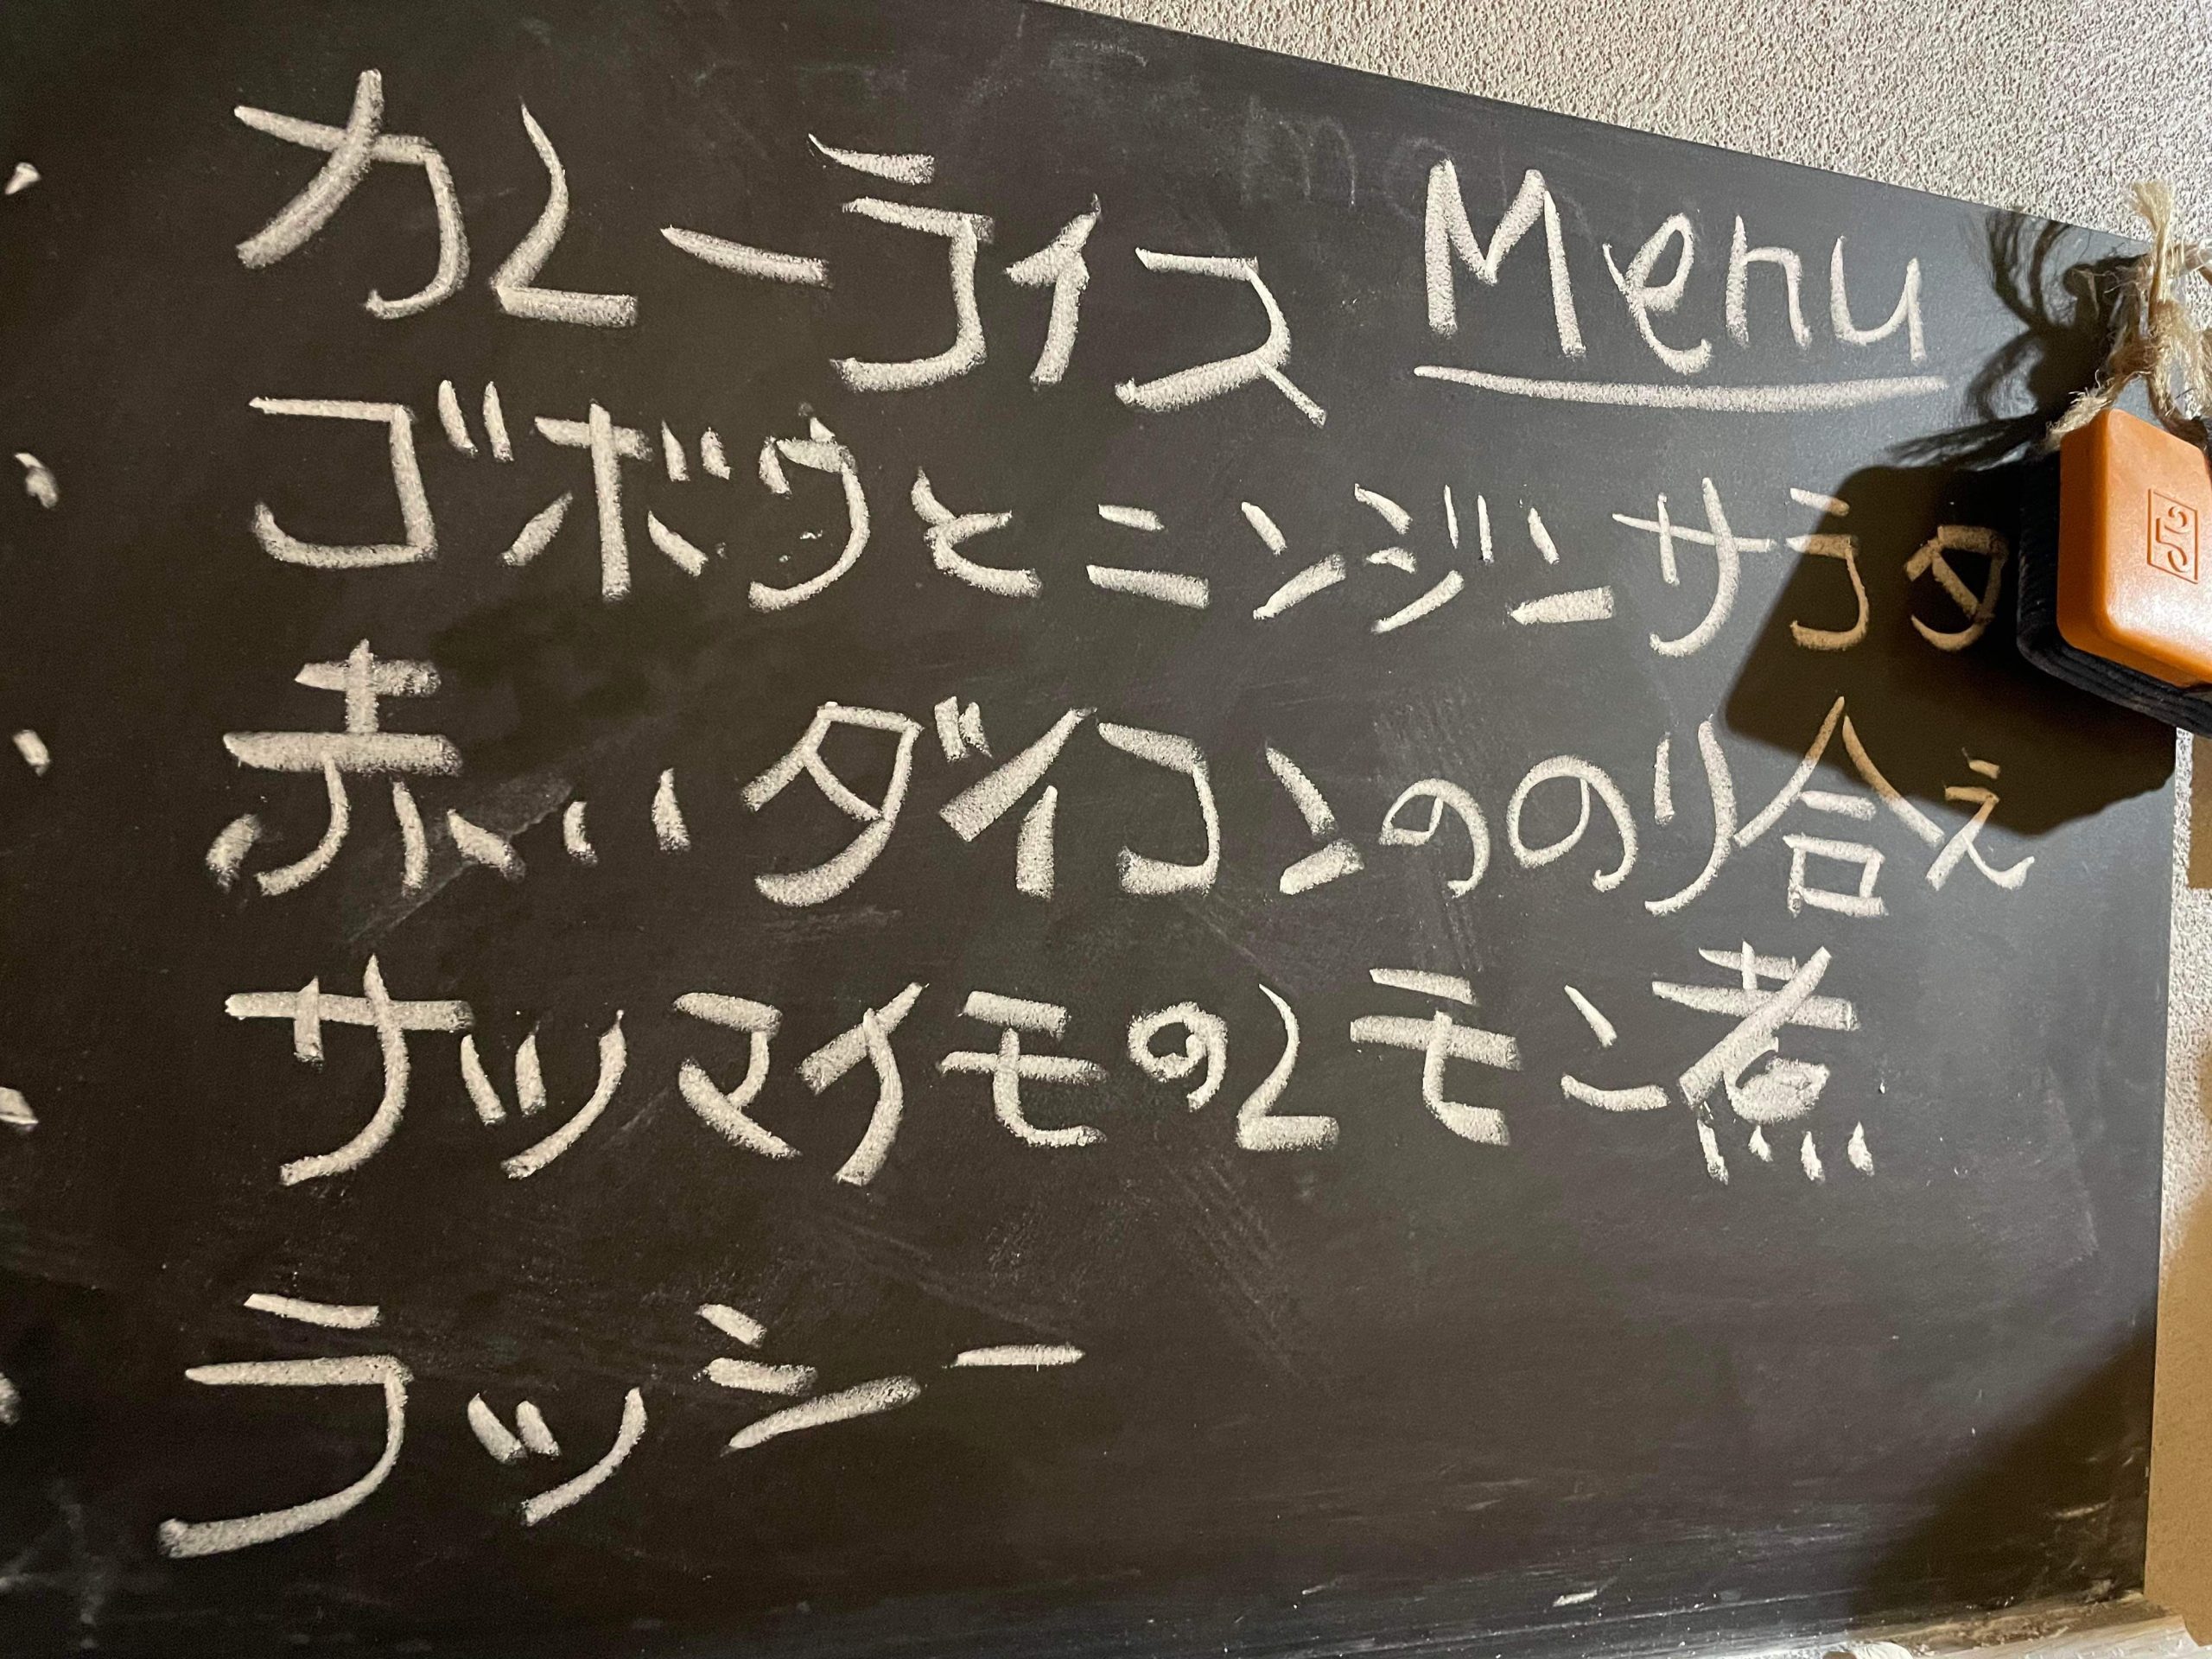 Menu
・カレーライス
・ゴボウとニンジンサラダ
・赤いダイコンののり合え
・サツマイモのレモン煮
・ラッシー